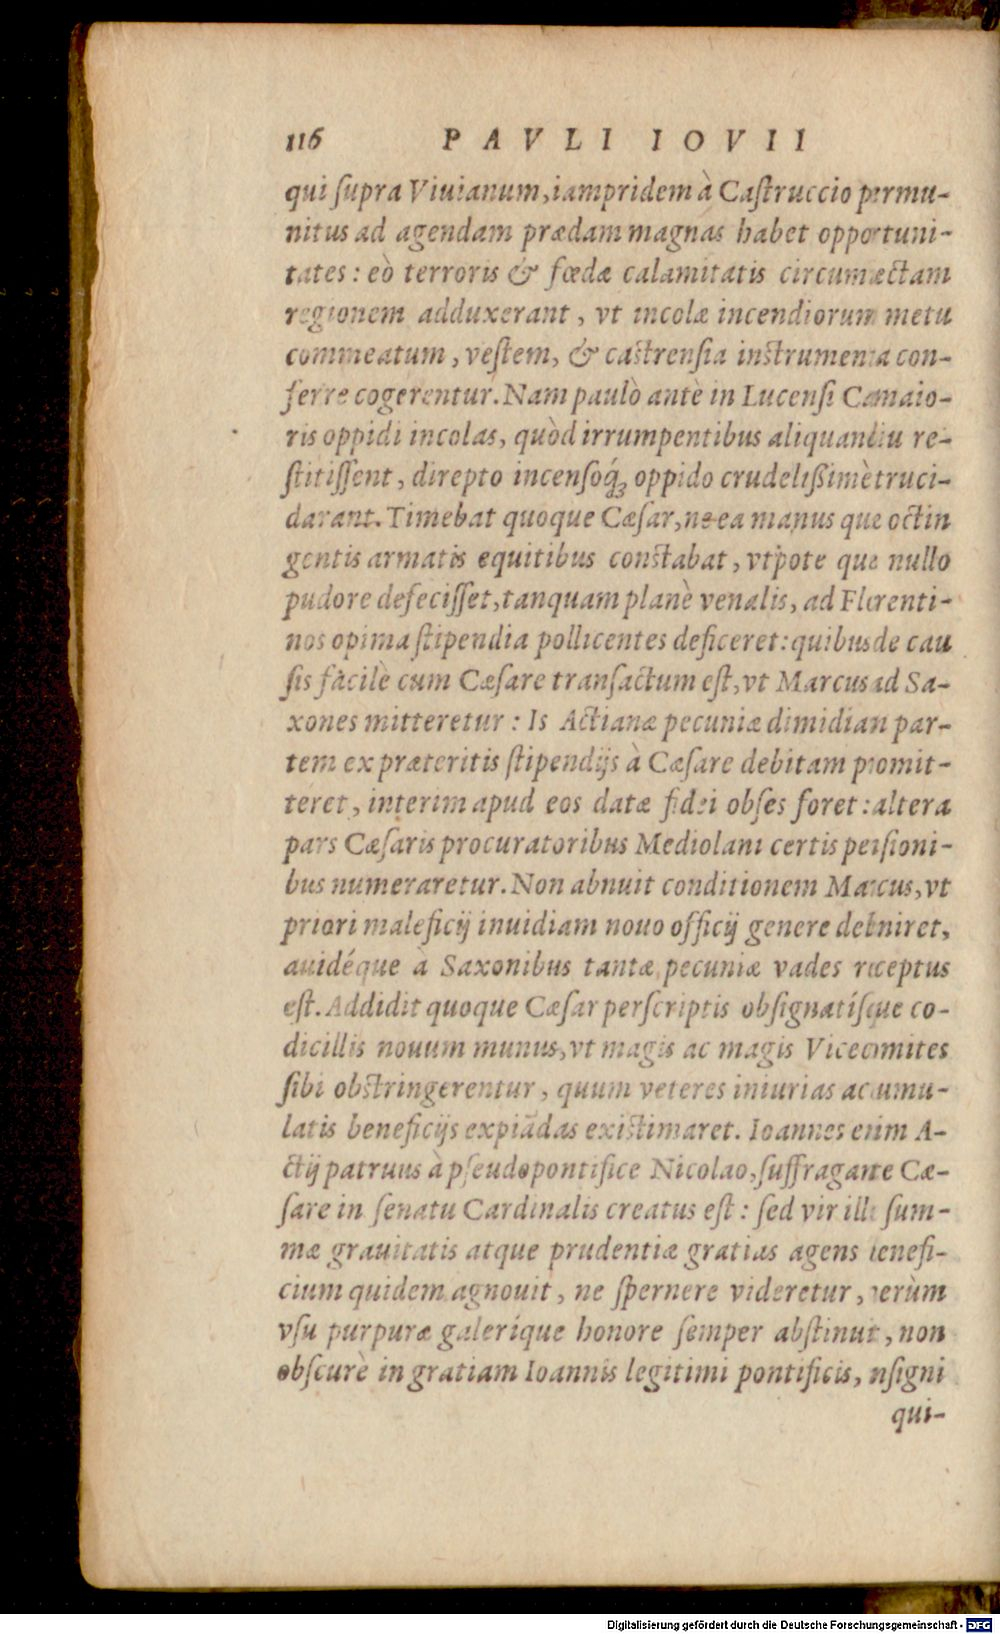 116 PAVLI IOVII
qui ſupra Viuianum, iampridem à Caſtruccio permu-
nitus ad agendam prædam magnas habet opportuni-
tates: eò terroris & fœdæ calamitatis circumiectam
regionem adduxerant, vt incolæ incendiorum metu
commeatum, veſtem, & caſtrenſia inſtrumenta con-
ferre cogerentur. Nam paulò antè in Lucenſi Camaio-
ris oppidi incolas, quòd irrumpentibus aliquandiu re-
ſtitiſſent, direpto incenſoq́; oppido crudelißimè truci-
darant. Timebat quoque Cæſar, ne ea manus quæ octin
gentis armatis equitibus conſtabat, vtpote quæ nullo
pudore defeciſſet, tanquam planè venalis, ad Florenti-
nos opima ſtipendia pollicentes deficeret: quibus de cau
ſis facilè cum Cæſare tranſactum eſt, vt Marcus ad Sa-
xones mitteretur: Is Actianæ pecuniæ dimidiam par-
tem ex præteritis ſtipendijs à Cæſare debitam promit-
teret, interim apud eos datæ fidei obſes foret: altera
pars Cæſaris procuratoribus Mediolani certis penſioni-
bus numeraretur. Non abnuit conditionem Marcus, vt
priori maleficij inuidiam nouo officij genere deliniret,
auidéque à Saxonibus tantæ pecuniæ vades receptus
eſt. Addidit quoque Cæſar perſcriptis obſignatíſque co-
dicillis nouum munus, vt magis ac magis Vicecomites
ſibi obſtringerentur, quum veteres iniurias accumu-
latis beneficijs expiādas exiſtimaret. Ioannes enim A-
ctij patruus à pſeudopontifice Nicolao, ſuffragante Cæ-
ſare in ſenatu Cardinalis creatus eſt: ſed vir ille ſum-
mæ grauitatis atque prudentiæ gratias agens benefi-
cium quidem agnouit, ne ſpernere videretur, verùm
vſu purpuræ galeríque honore ſemper abſtinuit, non
obſcurè in gratiam Ioannis legitimi pontificis, inſigni
qui-
Digitalisierung gefördert durch die Deutsche Forschungsgemeinschaft - DFG